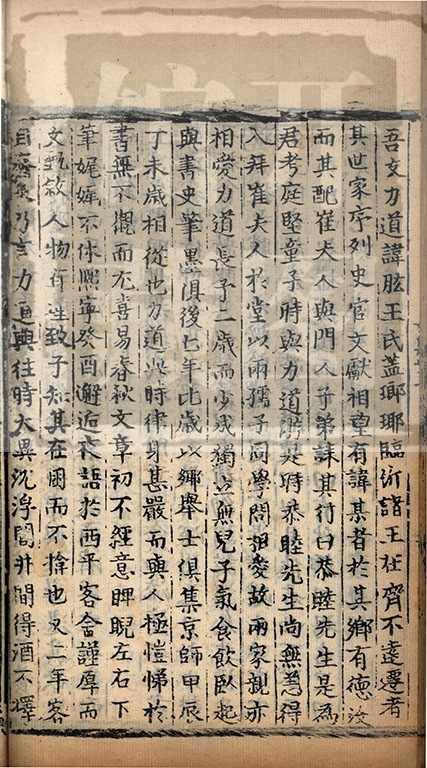 吾友力道諱肱王氏蓋瑯琊臨沂諸王在齊不遠遷者
其世家序列史官文獻相望有諱某者於其鄉有德汶
而其配崔夫人與門人子弟誄其行曰恭睦先生是為
君考庭堅童子時與力道游是時恭睦先生尚無恙得
入拜崔夫人於堂以兩孺子同學問相愛故兩家親亦
相愛力道長予二歲而少成獨立無兒子氣食飲臥起
與書史筆墨俱後七年比歲以鄉舉士俱集京師甲辰
丁未歲相從也力道此時律身甚嚴而與人極愷悌於
書無不觀而尤喜易春秋文章初不經意睥睨左右下
筆娓娓不休熙寧癸酉邂逅夜語於西平客舍謹厚而
文甄敘人物有性致予知其在困而不掩也又二年客
自濮乃言力道與往時大異沉浮閭井間得酒不擇